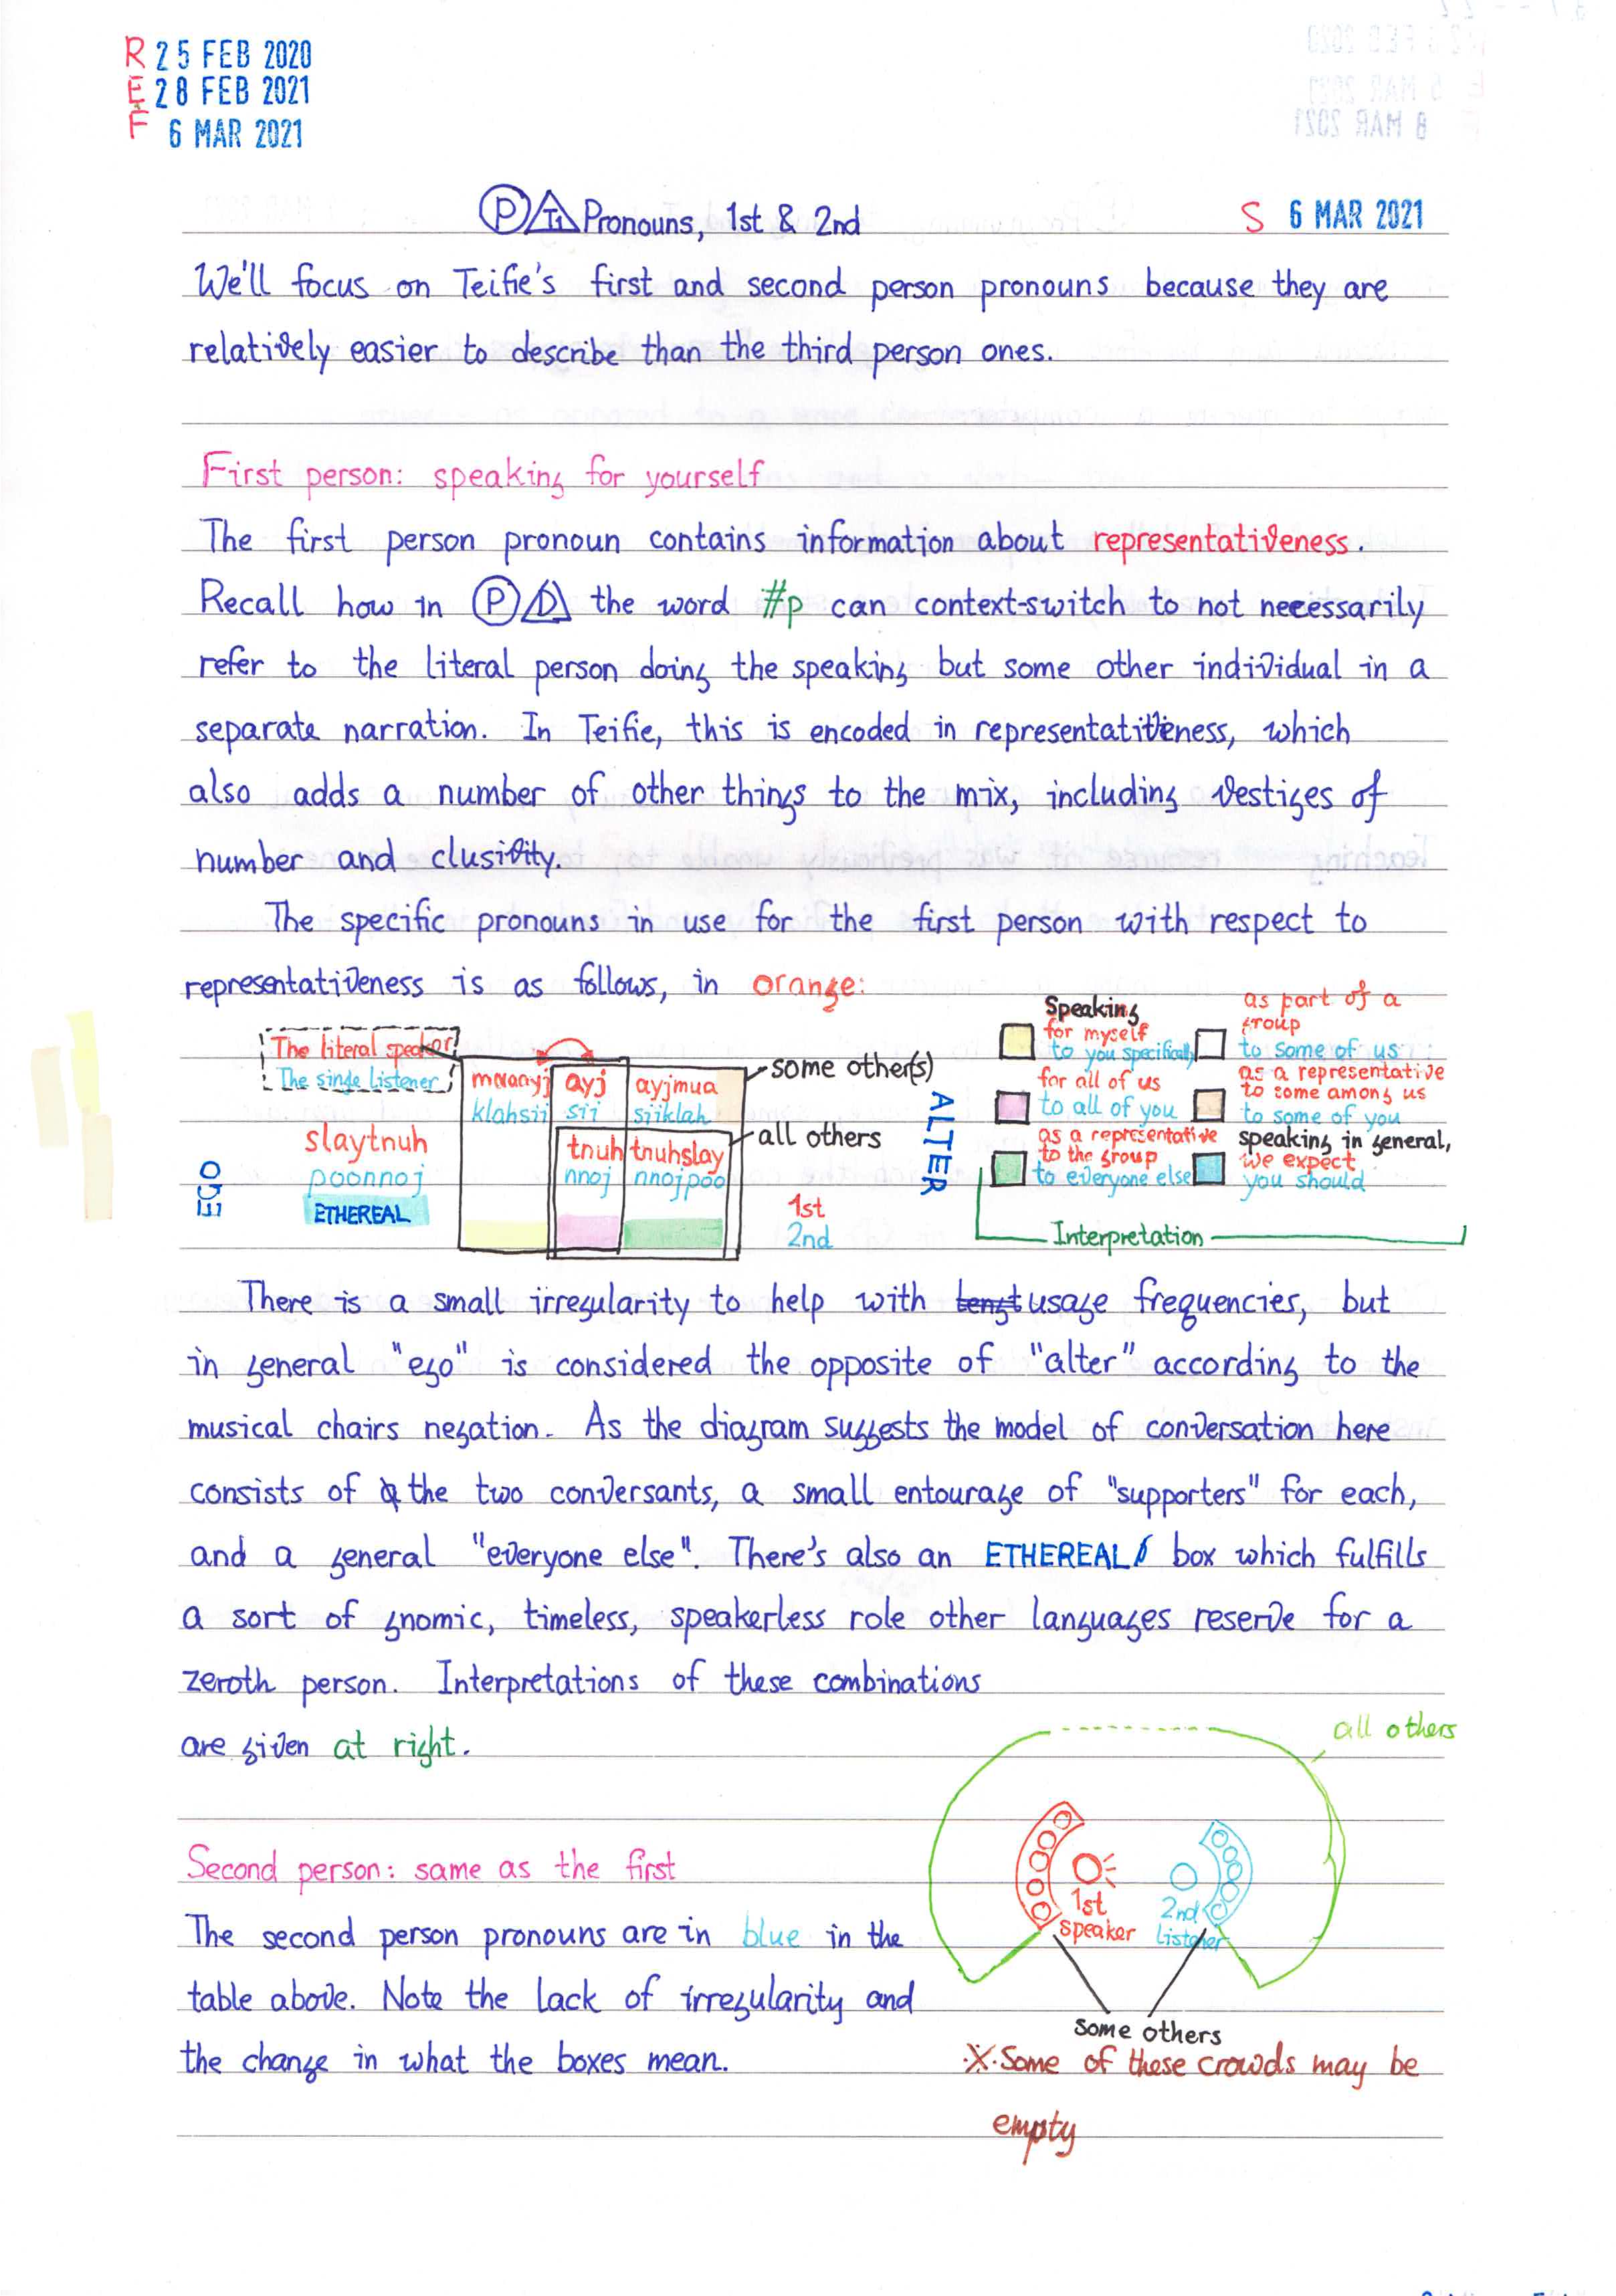 R 25 FEB 2020
E 28 FEB 2021
F 6 MAR 2021
P T1 Pronouns, 1st & 2nd
S 6 MAR 2021
We'll focus on Teifie's first and second person pronouns because they are
relatively easier to describe than the third person ones.
First person: speaking for yourself
The first person pronoun contains information about representativeness.
Recall how in P D the word #p can context-switch to not necessarily
refer to the literal person doing the speaking but some other individual in a
separate narration. In Teifie, this is encoded in representativeness, which
also adds a number of other things to the mix, including vestiges of
number and clusivity.
The specific pronouns in use for the first person with respect to
representativeness is as follows, in orange:
The literal speaker
The single listener
slaytnuh
poonnoj
ETHEREAL
EGO
ayj
ayjmua
klahsii
sii
siiklah
tnuh
tnuhslay
nnoj
nnojpoo
some other(s)
all others
1st
2nd
ALTER
Speaking
for myself
to you specifically
for all of us
to all of you
as a representative
to the group
to everyone else
as part of a
group
to some of us
as a representative
to some among us
to some of you
speaking in general,
we expect
you should
Interpretation
There is a small irregularity to help with usage frequencies, but
in general "ego" is considered the opposite of "alter" according to the
musical chairs negation. As the diagram suggests the model of conversation here
consists of the two conversants, a small entourage of "supporters" for each,
and a general "everyone else". There's also an ETHEREAL box which fulfills
a sort of gnomic, timeless, speakerless role other languages reserve for a
zeroth person. Interpretations of these combinations
are given at right.
Second person: same as the first
The second person pronouns are in blue in the
table above. Note the lack of irregularity and
the change in what the boxes mean.
all others
1st
speaker
2nd
Listener
some others
※ Some of these crowds may be
empty